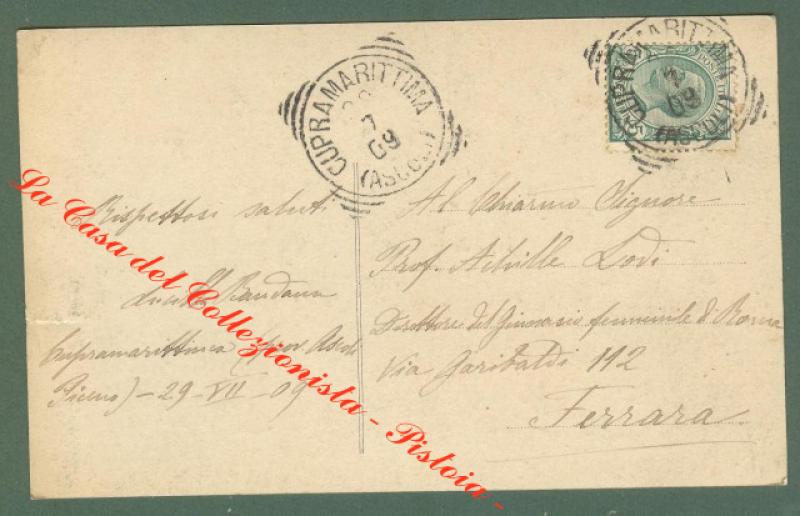 CUPRAMARITTIMA
7
09
(ASCOLI)
CUPRAMARITTIMA
09
(ASCOLI)
Rispettosi saluti
Bandana
Cupramarittima (prov. Ascoli
Piceno) - 29 - VII - 09
Al Chiarmo Signore
Prof. Achille Lodi
Direttore del Ginnasio femminile di Roma
Via Garibaldi 112
Ferrara
La Casa del Collezionista - Pistoia -